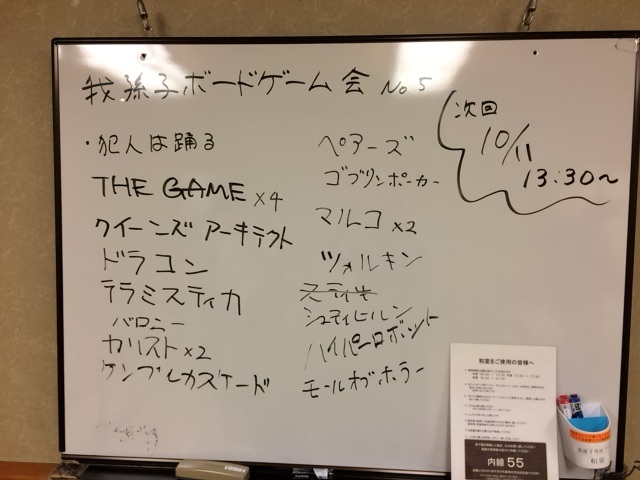 我孫子ボードゲーム会 No5
・犯人は踊る
THE GAME ×4
クイーンズ アーキテクト
ドラコン
テラミスティカ
バロニー
カリスト×2
ケンブレカスケード
ペアーズ
ゴブリンポーカー
マルコ ×2
ツォルキン
シュティヒルン
ハイパーロボット
モールオブホラー
次回
10/11
13:30〜
和室をご使用の皆様へ
内線 55
和室